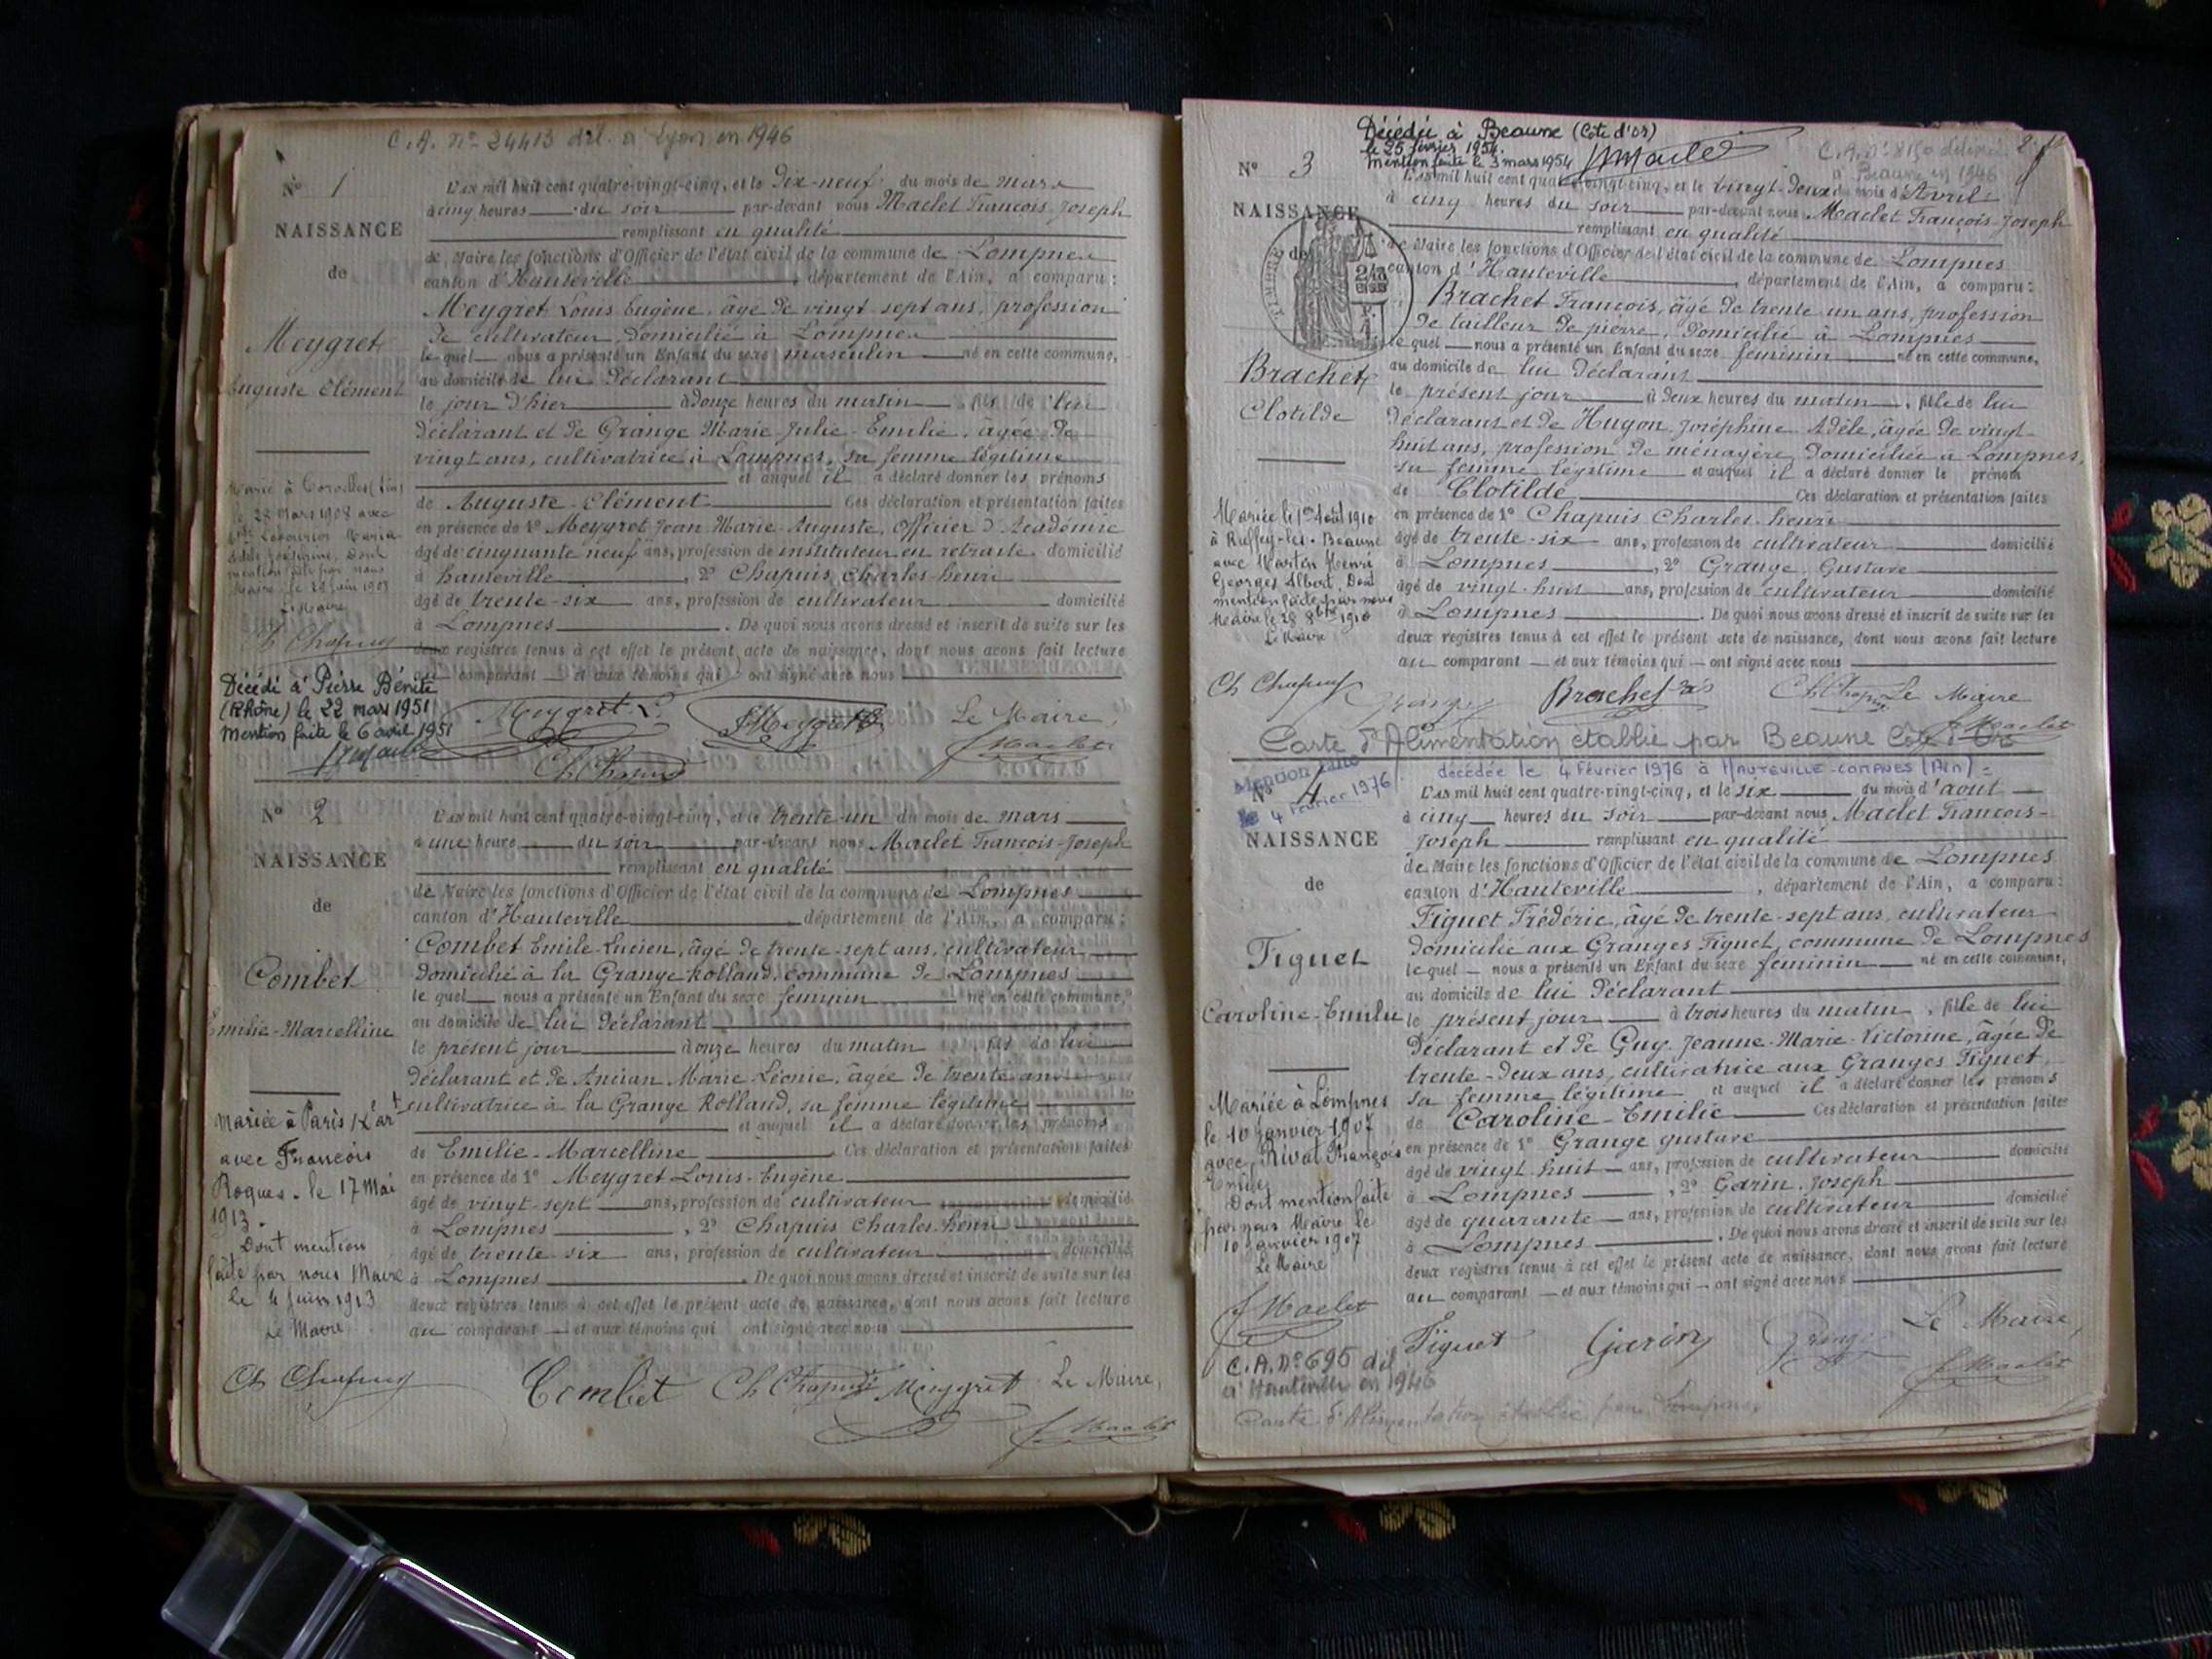 C.A. N° 24413 dél. à Lyon en 1946
N° 1
NAISSANCE
de
Meygret
Auguste Clément
L'an mil huit cent quatre-vingt-cinq, et le dix-neuf du mois de mars
à cinq heures du soir par-devant nous Maclet François-Joseph
remplissant en qualité
de Maire les fonctions d'Officier de l'état civil de la commune de Lompnes
canton d'Hauteville, département de l'Ain, a comparu:
Meygret Louis Eugène, âgé de vingt sept ans, profession
de cultivateur, domicilié à Lompnes
le quel nous a présenté un Enfant du sexe masculin né en cette commune,
au domicile de lui déclarant
le jour d'hier à douze heures du matin, fils de lui
déclarant et de Grange Marie-Julie-Emilie, âgée de
vingt ans, cultivatrice à Lompnes, sa femme légitime
et auquel il a déclaré donner les prénoms
de Auguste-Clément Ces déclaration et présentation faites
en présence de 1° Meygret Jean Marie-Auguste, Officier d'Académie
âgé de cinquante neuf ans, profession de instituteur en retraite domicilié
à hauteville, 2° Chapuis Charles-henri
âgé de trente-six ans, profession de cultivateur domicilié
à Lompnes. De quoi nous avons dressé et inscrit de suite sur les
deux registres tenus à cet effet le présent acte de naissance, dont nous avons fait lecture
au comparant et aux témoins qui ont signé avec nous
Marié à
le 28 Mars 1908 avec
Maria
dont
mention faite par nous
Maire le 28 juin 1908
Le Maire
Ch Chapuis
Décédé à Pierre Bénite
(Rhône) le 22 mars 1951
Mention faite le 6 avril 1951
Meygret L.
Meygret
Ch Chapuis
Le Maire,
J Maclet
N° 2
NAISSANCE
de
Combet
Emilie-Marcelline
L'an mil huit cent quatre-vingt-cinq, et le trente-un du mois de mars
à une heure du soir par-devant nous Maclet François-Joseph
remplissant en qualité
de Maire les fonctions d'Officier de l'état civil de la commune de Lompnes
canton d'Hauteville département de l'Ain, a comparu:
Combet Emile-Lucien, âgé de trente-sept ans, cultivateur
domicilié à la Grange Rolland, commune de Lompnes
le quel nous a présenté un Enfant du sexe feminin né en cette commune,
au domicile de lui déclarant
le présent jour à onze heures du matin fils de lui
déclarant et de Ancian Marie-Léonie, âgée de trente ans
cultivatrice à la Grange Rolland, sa femme légitime
et auquel il a déclaré donner les prénoms
de Emilie-Marcelline Ces déclaration et présentation faites
en présence de 1° Meygret Louis-Eugène
âgé de vingt-sept ans, profession de cultivateur domicilié
à Lompnes, 2° Chapuis Charles-henri
âgé de trente six ans, profession de cultivateur domicilié
à Lompnes. De quoi nous avons dressé et inscrit de suite sur les
deux registres tenus à cet effet le présent acte de naissance, dont nous avons fait lecture
au comparant et aux témoins qui ont signé avec nous
Mariée à Paris 12e art
avec François
Roques le 17 Mai
1913.
Dont mention
faite par nous Maire
le 4 juin 1913
Le Maire
Ch Chapuis
Combet Ch Chapuis Meygret Le Maire,
J Maclet
Décédée à Beaune (Côte d'or)
le 25 février 1954.
Mention faite le 3 mars 1954
C.A. N° 8150 délivrée
à Beaune en 1946
N° 3
NAISSANCE
de
TIMBRE
Brachet
Clotilde
L'an mil huit cent quatre-vingt-cinq, et le vingt-deux du mois d'Avril
à cinq heures du soir par-devant nous Maclet François-Joseph
remplissant en qualité
de Maire les fonctions d'Officier de l'état civil de la commune de Lompnes
canton d'Hauteville, département de l'Ain, a comparu:
Brachet François, âgé de trente un ans, profession
de tailleur de pierre, domicilié à Lompnes
le quel nous a présenté un Enfant du sexe feminin né en cette commune,
au domicile de lui déclarant
le présent jour à deux heures du matin, fille de lui
déclarant et de Hugon Joséphine Adèle, âgée de vingt-
huit ans, profession de ménagère, domiciliée à Lompnes,
sa femme légitime et auquel il a déclaré donner le prénom
de Clotilde Ces déclaration et présentation faites
en présence de 1° Chapuis Charles-henri
âgé de trente-six ans, profession de cultivateur domicilié
à Lompnes, 2° Grange Gustave
âgé de vingt-huit ans, profession de cultivateur domicilié
à Lompnes. De quoi nous avons dressé et inscrit de suite sur les
deux registres tenus à cet effet le présent acte de naissance, dont nous avons fait lecture
au comparant et aux témoins qui ont signé avec nous
Mariée le 1er Août 1910
à Ruffey-les-Beaune
avec Martin Henri
Georges Albert. Dont
mention faite par nous
Maire le 28 8bre 1910
Le Maire
Ch Chapuis
Grange Brachet Ch Chapuis Le Maire
J Maclet
Carte d'Alimentation établie par Beaune Côte d'Or
Mention faite
le 4 Février 1976
décédée le 4 Février 1976 à HAUTEVILLE-LOMPNES (Ain)
N° 4
NAISSANCE
de
Figuet
Caroline-Emilie
L'an mil huit cent quatre-vingt-cinq, et le six du mois d'août
à cinq heures du soir par-devant nous Maclet François-
Joseph remplissant en qualité
de Maire les fonctions d'Officier de l'état civil de la commune de Lompnes
canton d'Hauteville, département de l'Ain, a comparu:
Figuet Frédéric, âgé de trente-sept ans, cultivateur
domicilié aux Granges Figuet, commune de Lompnes
le quel nous a présenté un Enfant du sexe feminin né en cette commune,
au domicile de lui déclarant
le présent jour à trois heures du matin, fille de lui
déclarant et de Guy Jeanne-Marie-Victorine, âgée de
trente-deux ans, cultivatrice aux Granges Figuet,
sa femme légitime et auquel il a déclaré donner les prénoms
de Caroline-Emilie Ces déclaration et présentation faites
en présence de 1° Grange gustave
âgé de vingt huit ans, profession de cultivateur domicilié
à Lompnes, 2° Garin Joseph
âgé de quarante ans, profession de cultivateur domicilié
à Lompnes. De quoi nous avons dressé et inscrit de suite sur les
deux registres tenus à cet effet le présent acte de naissance, dont nous avons fait lecture
au comparant et aux témoins qui ont signé avec nous
Mariée à Lompnes
le 10 janvier 1907
avec Rivat François
Emile
Dont mention faite
par nous Maire le
10 janvier 1907
Le Maire
J Maclet
Figuet Garin Grange Le Maire,
J Maclet
C.A. N° 695 dél
à Hauteville en 1946
Carte d'Alimentation établie par Lompnes